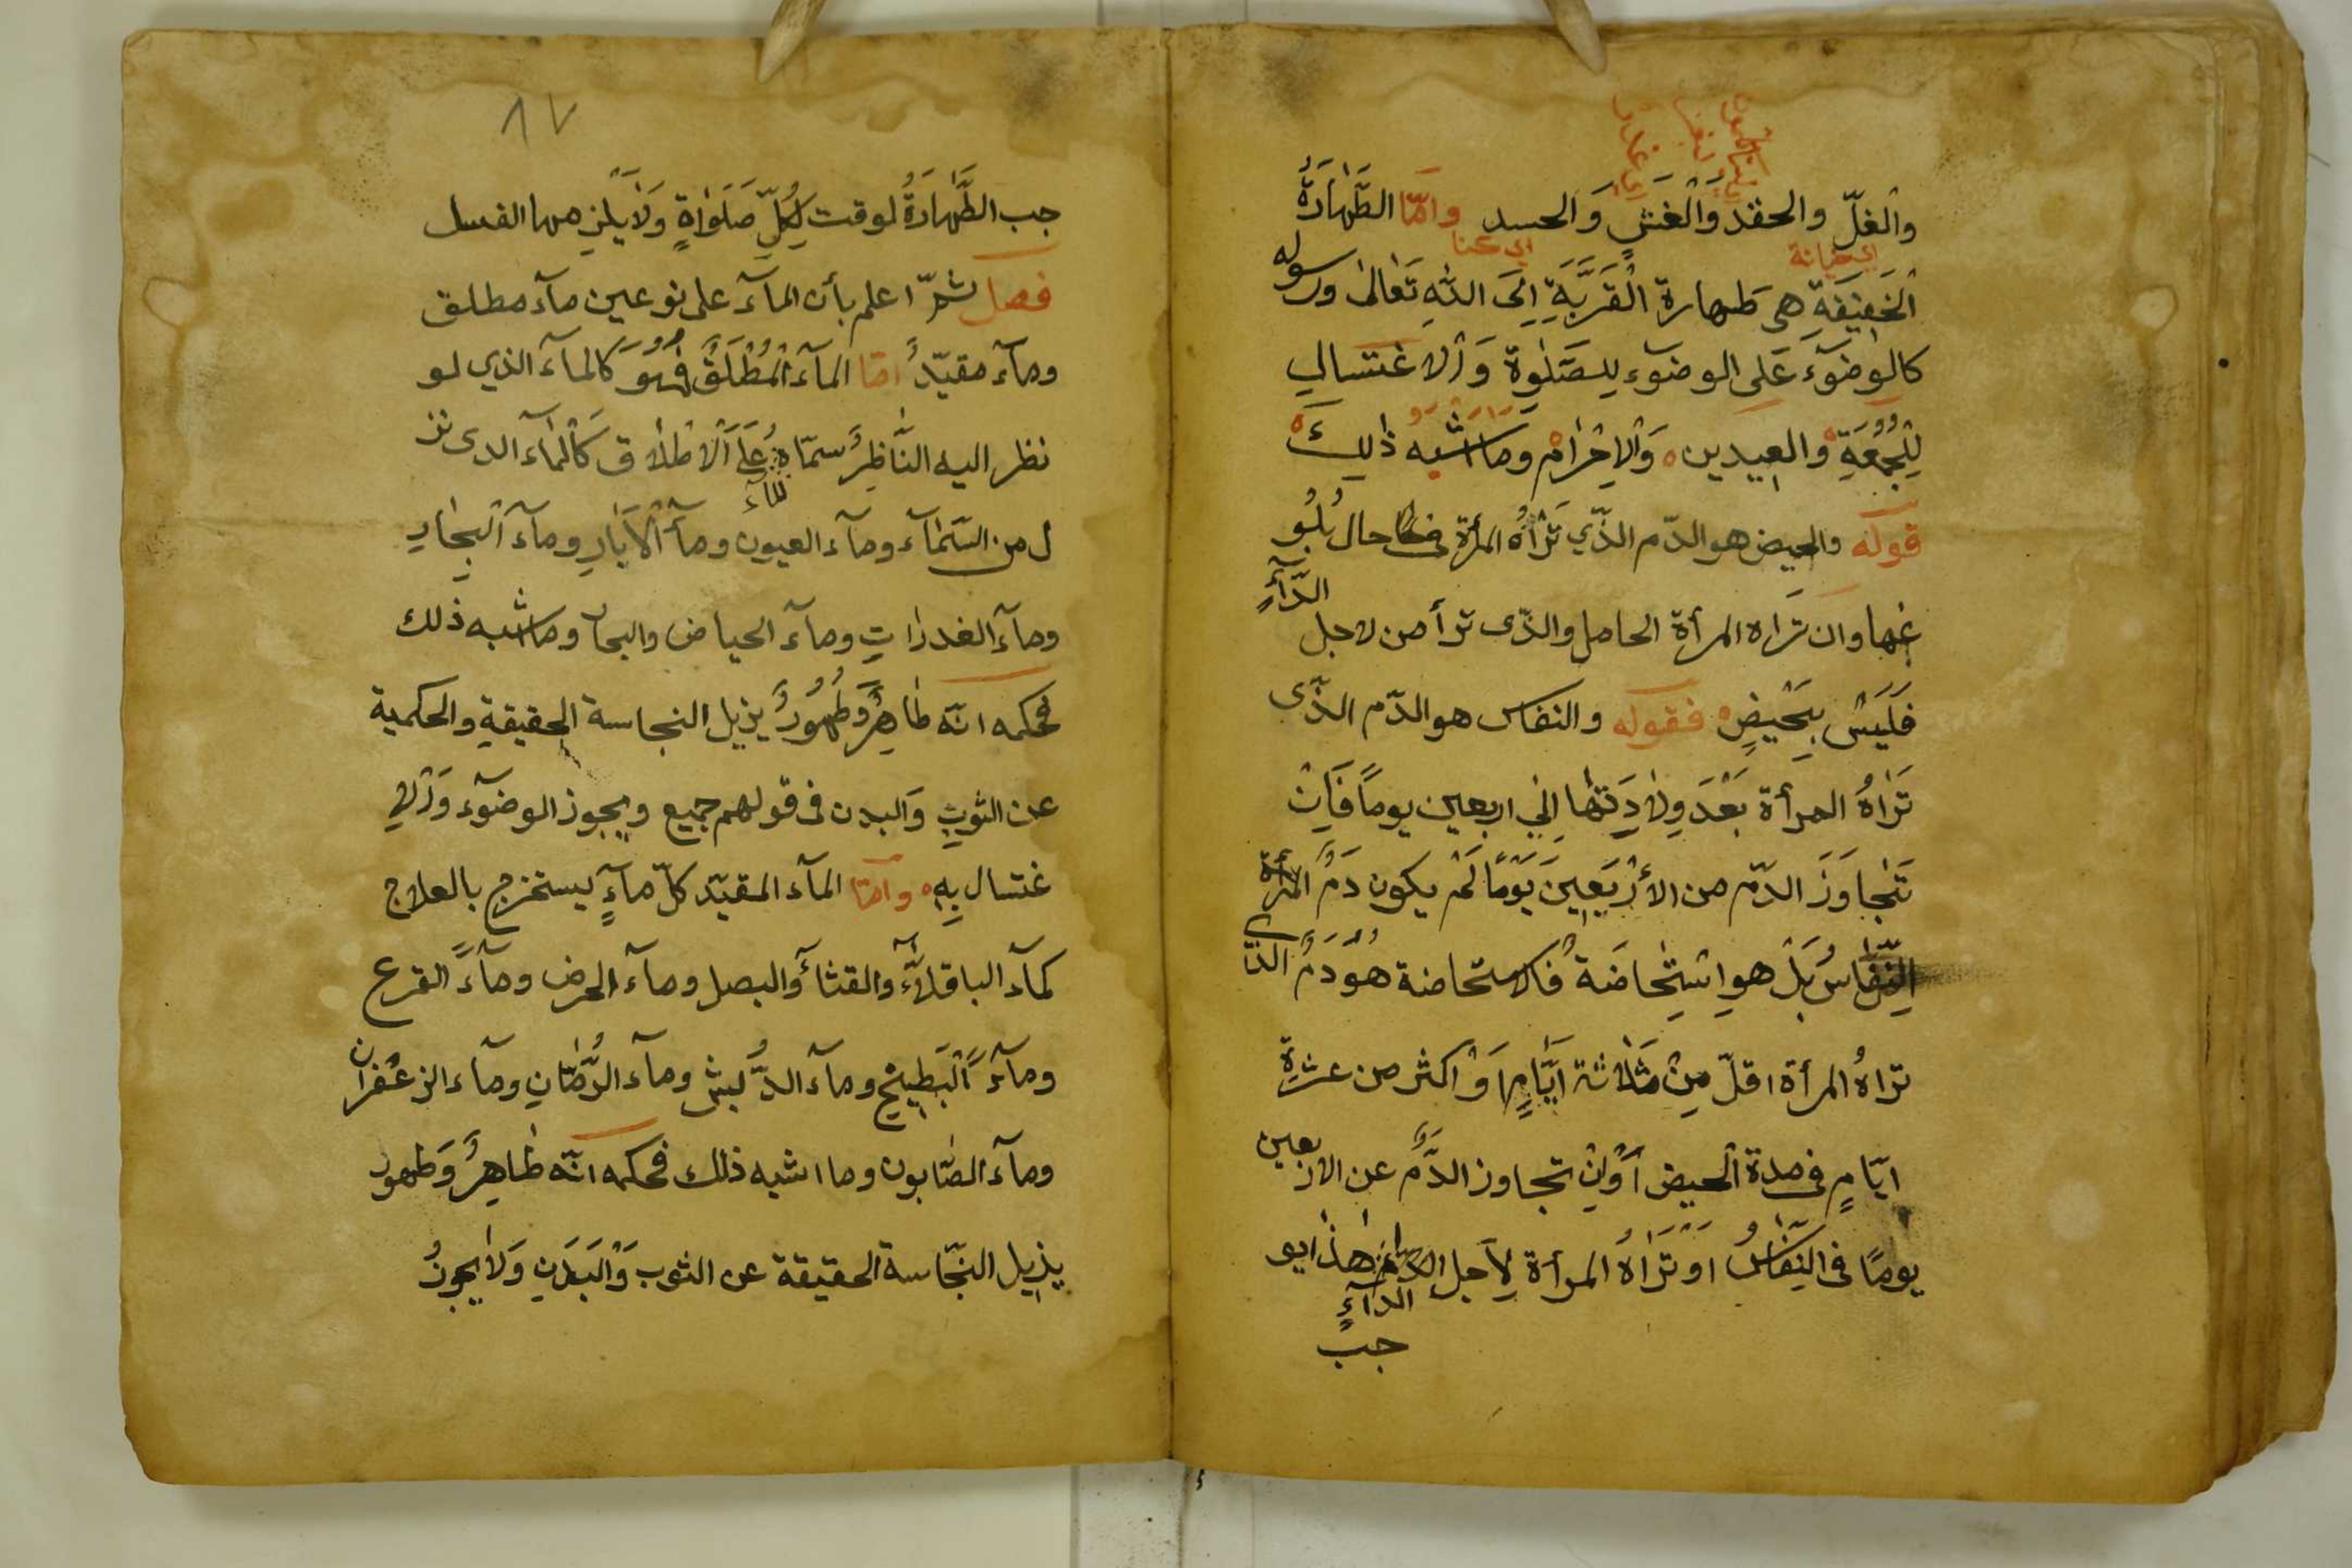 والغلّ والحقد وَالْغَشِّ وَالحسد وامّا الطَّهَارَةُ
اي خيانة
اي عنا
الْخَفِيفَةِ هي طهارة الْقَرَبَّةِ اِلَى اللّٰهِ تَعَالىٰ ورسوله
كالوضوٓءَ عَلى الوضوٓء لِلصَّلٰوة وَالاغتسالِ
لِلْجُمُعَةِ والعيدين وَالْاِحْرَامِ وما اشبهُ ذٰلِكَ
قوله والحيض هو الدّم الذّي تَرٰاهُ المرأة في حال بُلُو
غها وان تَراه المرأة الحامل والذّى ترأ من لاجل
الدّآءِ
فَلَيْسَ بِحَيْضٍ فقوله والنفاس هو الدّم الذّى
تَرٰاهُ المرأة بَعْدَ وِلاٰدَتِهٰا اِلٰي اربعين يومًا فَاِنْ
تَتَجٰاوَزَ الدّم من الأَرْبَعِينَ يَوْمًا لَمْ يكون دَمُ المرأة
النِّفٰاسُ بَلْ هو اسْتِحٰاضَةُ فالاستحاضة هُوَ دَمُ الذّي
تراهُ المرأة اقلّ مِنْ ثَلاٰثة اَيّٰامٍ اَوْ اكثر من عشرةِ
ايّامٍ في مدة الْحيض اَوْ اِنْ تجاوز الدَّمُ عن الاربعين
يومًا في النِّفٰاسُ اوْ تَرٰاهُ المرأة لِاَجل هٰذا يو
الدآءِ
جب
٨٧
جب الطَّهٰارَةُ لوقت لِكُلِّ صَلَوٰاةٍ وَلاٰ يلزمها الغسل
فصل ثمّ اعلم بأن المآءَ على نوعين مآء مطلق
ومآء مقيّدٌ امّا المآء الْمُطْلَقُ فَهُوَ كالمآءَ الذي لو
نظر اليه النّٰاظِرُ سمّاهُ عَلَى الْاطلاٰق كَالْمٰآء الدى نز
للمآء
ل من السّمٰآء ومآء العيون ومآء الْاٰبٰارِ ومآء الْبِحٰارِ
ومآء الغدرٰاتِ ومآء الحياض والبحا وما اشبه ذلك
فحكمه انّه طٰاهِرٌ وَطَهُورٌ يزيل النجاسة الحقيقةِ والحكمية
عن الثوبِ وَالبدن في قولهم جميع ويجوز الوضوٓء وَالْا
غتسال بِهِ وامّا المآء المقيّد كلّ مآءٍ يستخرج بالعلاج
كمآء الباقلاّءِ والقثاءَ والبصل ومآء الحرض ومآءَ القرع
ومآءَ الْبَطِيخِ ومآء الدُّبش ومآء الرُّمّٰانِ ومآء الزعفران
ومآء الصّٰابون وما اشبه ذلك فحكمه انّه طٰاهِرٌ وَطهور
يزيل النّجٰاسة الحقيقة عن الثوب وَالْبَدَنِ وَلاٰ يجوزُ